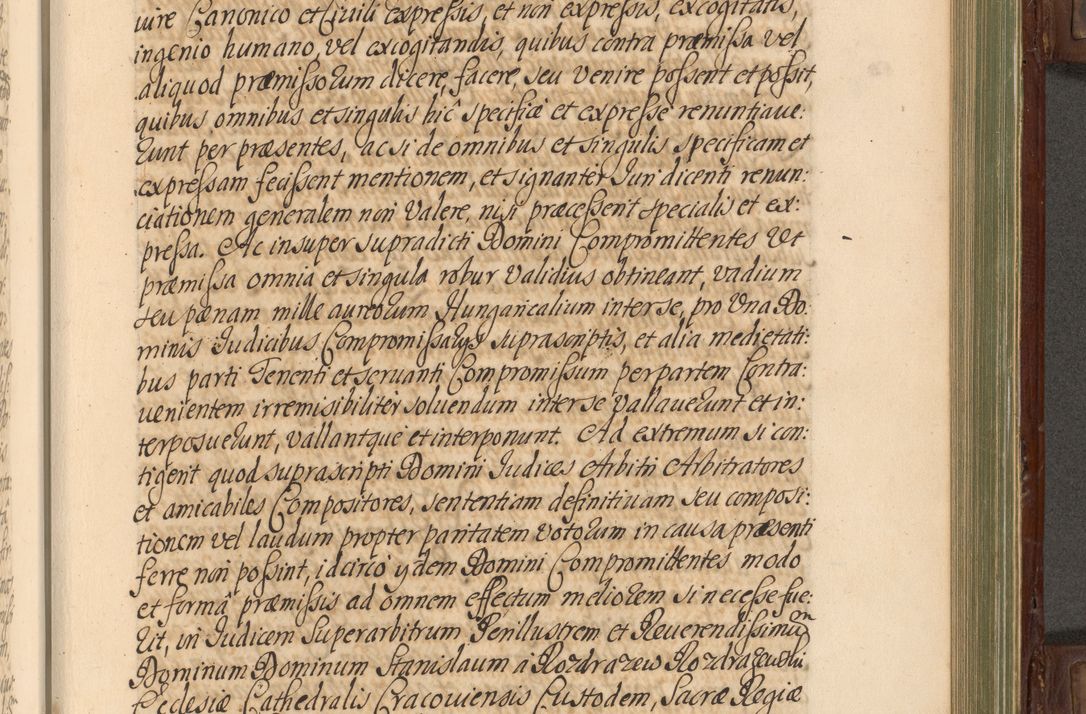 iure Canonico et Ciuili expressis, et non expressis, excogitatis,
ingenio humano, vel excogitandis, quibus contra præmissa vel
aliquod præmissorum dicere, facere, seu venire possent et possit,
quibus omnibus et singulis hic specificè et expressè renuntiaue:
runt per præsentes, ac si de omnibus et singulis specificam et
expressam fecissent mentionem, et signanter Iuri dicenti renun:
ciationem generalem non valere, nisi præcessent specialis et ex:
pressa. Ac insuper supradicti Domini Compromittentes Ut
præmissa omnia et singula robur validius obtineant, vadium
seu pænam mille aureorum Hungaricalium inter se, pro Una Do:
minis Iudicibus Compromissarys suprascriptis, et alia medietati:
bus parti Tenenti et seruanti Compromissum per partem Contra:
uenientem irremisibilitèr soluendum inter se vallauerunt et in:
terposuerunt, vallantque et interponunt. Ad extremum si con:
tigerit quod suprascripti Domini Iudices Arbitri Arbitratores
et amicabiles Compositores, sententiam definitiuam seu composi:
tionem vel laudum propter paritatem votorum in causa præsenti
ferre non possint, idcirco ydem Domini Compromittentes modo
et forma præmissis ad omnem effectum meliorem si necesse fue:
rit, in Iudicem Superarbitrum Perillustrem et Reuerendissimum
Dominum Dominum Stanislaum à Rozdrazew Rozdrazewski
Ecclesiæ Cathedralis Cracouiensis Custodem, Sacræ Regiæ